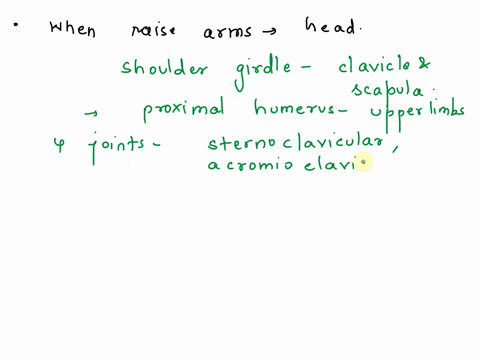 • When raise arms → head.
shoulder girdle - clavicle &
scapula.
→ proximal humerus - upper limbs
4 joints - sterno clavicular,
acromio clavi